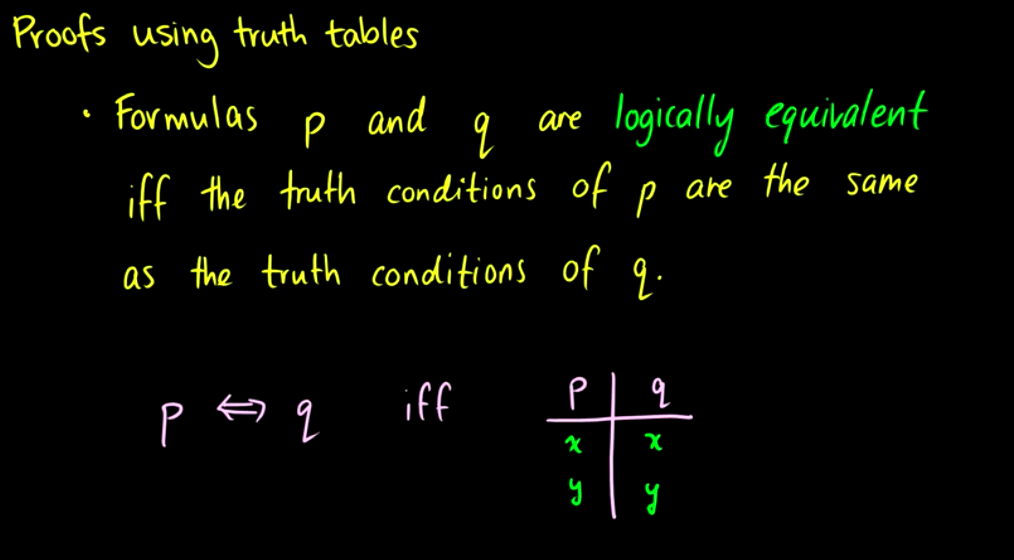 Proofs using truth tables
· Formulas p and q are logically equivalent
iff the truth conditions of p are the same
as the truth conditions of q.
p ⇔ q iff
p | q
x | x
y | y